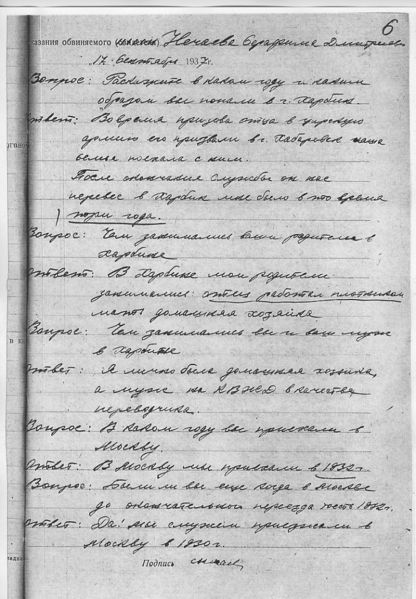 6
казания обвиняемого Нечаева Серафима Дмитриев
17 сентября 1937г.
Вопрос: Расскажите в каком году и каким
образом вы попали в г. Харбин.
Ответ: Во время призыва отца в царскую
армию его призвали в г. Хабаровск наша
семья поехала с ним.
После окончания службы он нас
перевес в Харбин мне было в это время
три года.
Вопрос: Чем занимались ваши родители в
Харбине
Ответ: В Харбине мои родители
занимались: отец работал плотником
мать домашняя хозяйка
Вопрос: Чем занимались вы и ваш муж
в Харбине
Ответ: Я лично была домашняя хозяйка,
а муж на КВЖД в качестве
переводчика.
Вопрос: В каком году вы приехали в
Москву.
Ответ: В Москву мы приехали в 1932г.
Вопрос: Были ли вы еще когда в Москве
до окончательного переезда
Ответ: Да! мы с мужем приезжали в
Москву в 1930г.
Подпись